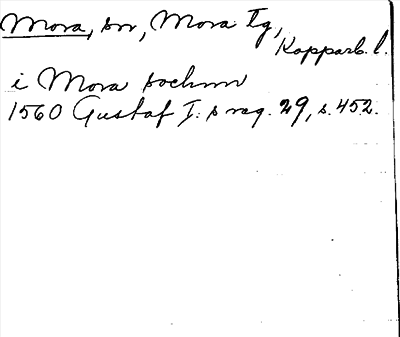 Mora, sn, Mora Tg,
Kopparb. l.
i Mora sochnn
1560 Gustaf I: s reg. 29, s. 452.